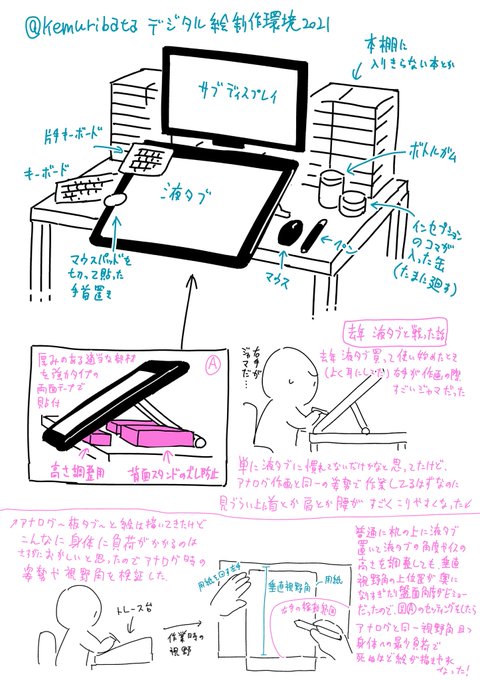 @kemuribata デジタル絵制作環境2021
本棚に
入りきらない本とか
サブディスプレイ
片手キーボード
キーボード
液タブ
ボトルガム
インセプション
のコマが
入った缶
(たまに廻す)
ペン
マウス
マウスパッドを
ちぎって貼った
手首置き
厚みのある適当な部材
を強力タイプの
両面テープで
貼付
A
高さ調整用
背面スタンドのズレ防止
去年 液タブと戦った話
右手が
ジャマだ…
去年 液タブ買って使い始めたとき
(よく耳にしてた)右手が作画の際
すごいジャマだった
単に液タブに慣れてないだけかなと思ってたけど、
アナログ作画と同一の姿勢で作業してるはずなのに
見づらい上に首とか肩とか腰がすごくこりやすくなった
アナログ〜板タブ〜と絵は描いてきたけど
こんなに身体に負荷がかかるのは
さすがにおかしいと思ったのでアナログ時の
姿勢や視野角を検証した
トレース台
作業時の
視野
用紙を回す手
垂直視野角
用紙
右手の稼動範囲
普通に机の上に液タブ
置いて液タブの角度やイスの
高さを調整しても、垂直
視野角の上位置が
だったので、図Aのセッティングをしたら
アナログと同一視野角且つ
身体への最少負荷で
死ぬほど絵が描きやすく
なった!